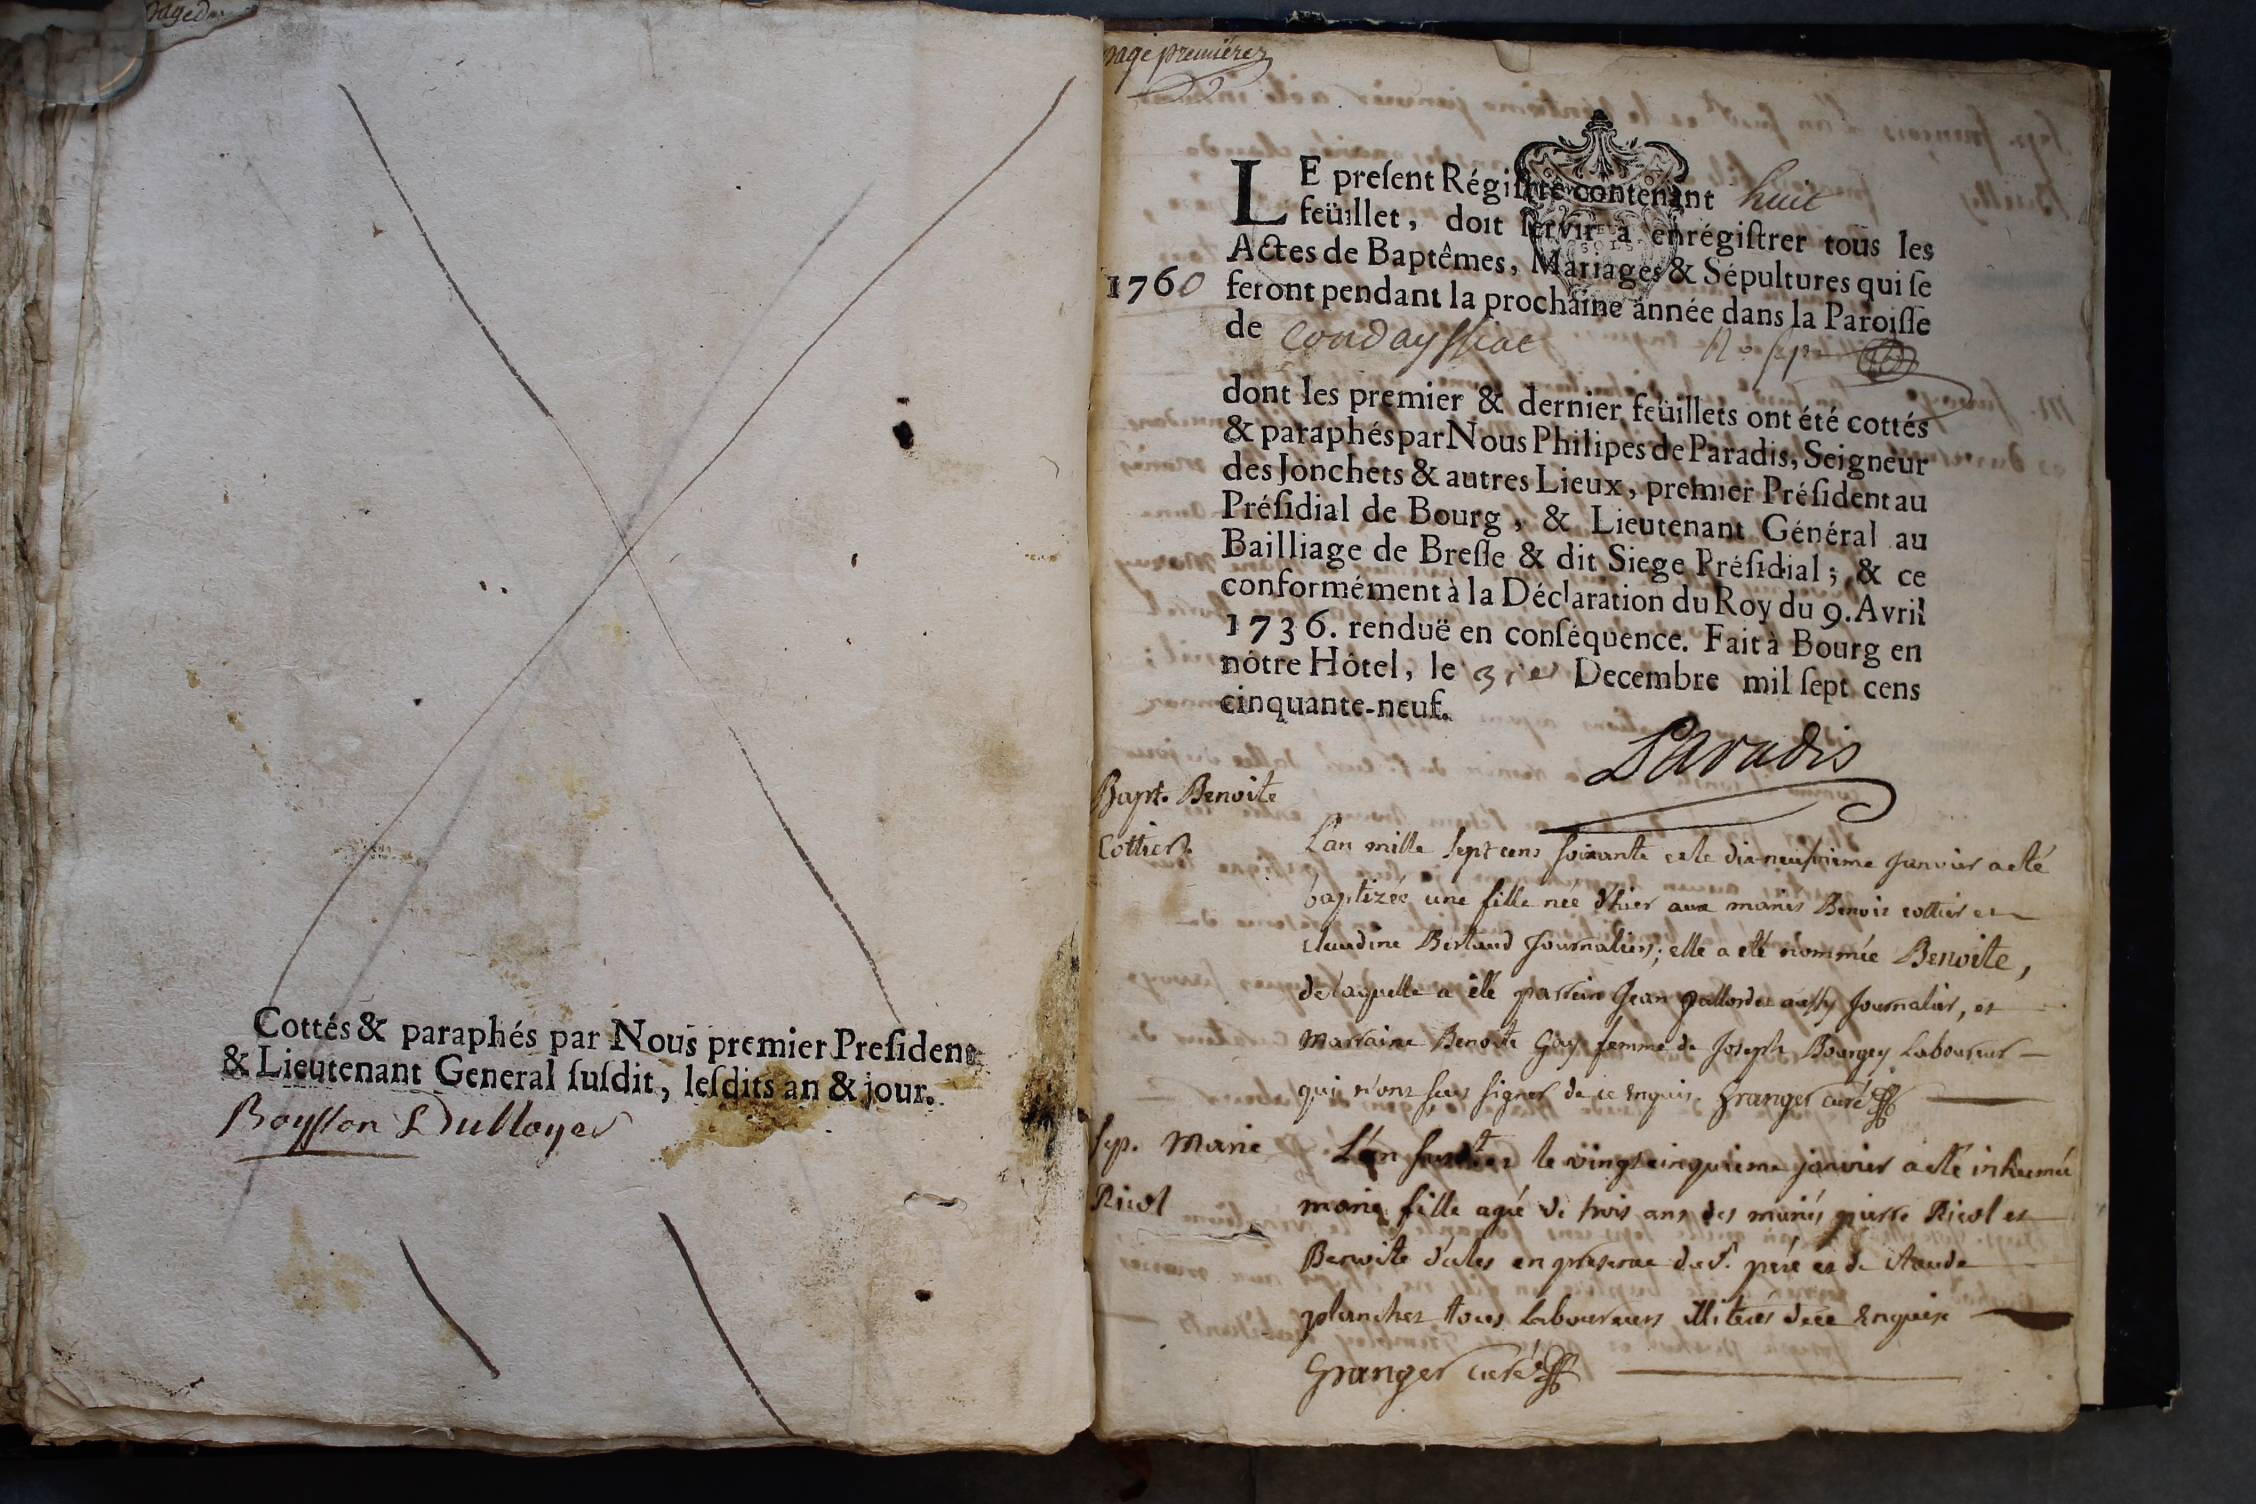 Cottés & paraphés par Nous premier Preſident
& Lieutenant General ſuſdit, leſdits an & jour.
page premiere
LE preſent Régiſtre contenant huit
feüillet, doit ſervir à enrégiſtrer tous les
Actes de Baptêmes, Mariages & Sépultures qui ſe
1760 feront pendant la prochaine année dans la Paroiſſe
de Condayſſiat
dont les premier & dernier feüillets ont été cottés
& paraphés par Nous Philipes de Paradis, Seigneur
des Jonchets & autres Lieux, premier Préſident au
Préſidial de Bourg, & Lieutenant Général au
Bailliage de Breſſe & dit Siege Préſidial; & ce
conformément à la Déclaration du Roy du 9. Avril
1736. renduë en conſéquence. Fait à Bourg en
nôtre Hôtel, le Decembre mil ſept cens
cinquante-neuf.
Paradis
Bapt. Benoite
Cottier.
L'an mille sept cens soixante et le dix neufvieme Janvier a eté
baptizée une fille née d'hier aux mariés Benoit cottier et
claudine Bertaud Journaliers; elle a eté nommée Benoite,
de laquelle a eté parrein Jean aussy Journalier, et
Marraine Benoite Guy femme de Joseph Bourgey Laboureur
qui n'ont sceu signer de ce enquis. Granger curé
Sep. Marie
Ricol
L'an le vingt cinquieme janvier a eté inhumée
marie fille agée de trois ans des mariés pierre Ricol et
Benoite en presence du père et de claude
planchet tous Laboureurs de ce Enquis
Granger curé